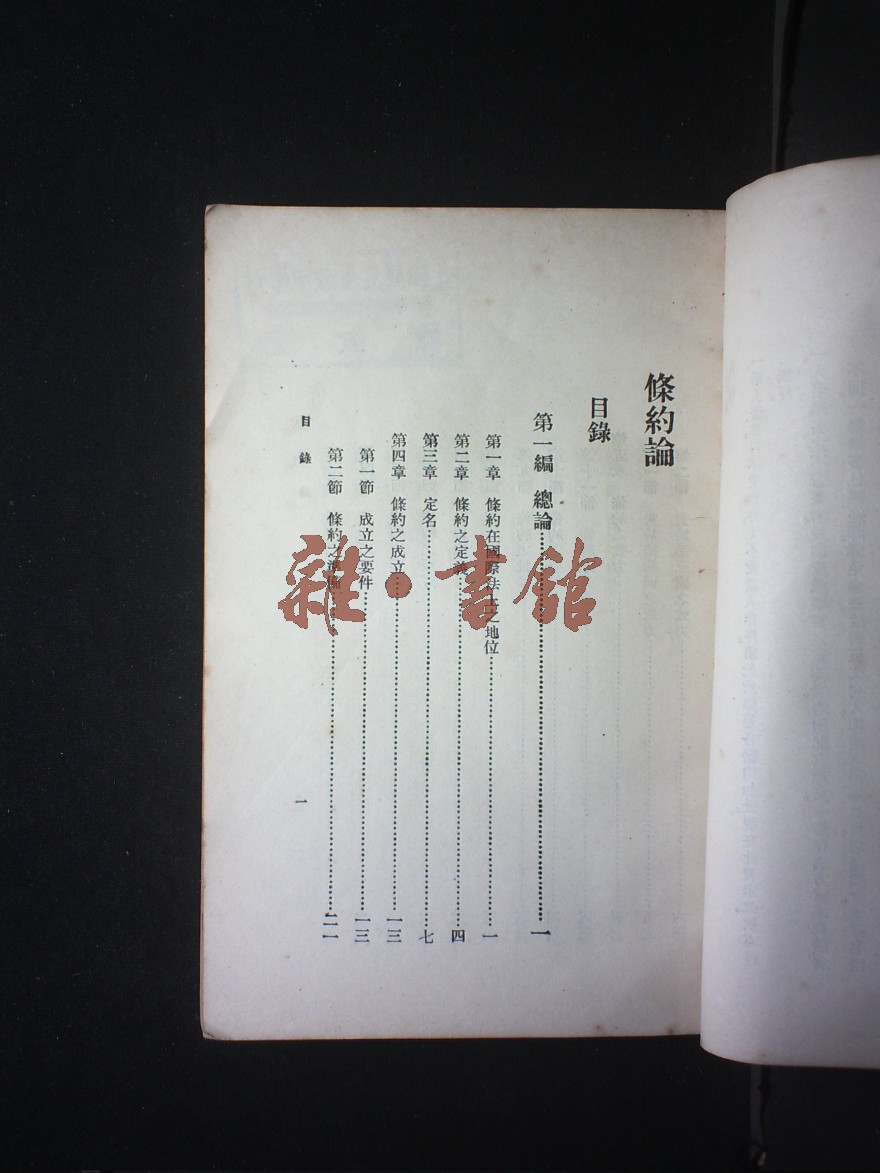 條約論
目錄
第一編　總論……一
第一章　條約在國際法上之地位……一
第二章　條約之定義……四
第三章　定名……七
第四章　條約之成立……一三
第一節　成立之要件……一三
第二節　條約之準備……二一
目錄
一
雜·書館